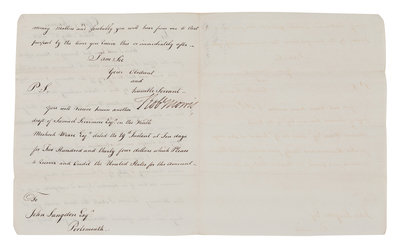 money matters and probably you will hear from me to that
purpose by the time you receive this or immediately after
I am Sir
Your Obedient
and
humble Servant
Robt Morris
P.S.
You will receive herein another
draft of Samuel Livermore Esqr. on the Honble
Meshech Weare Esqr. dated the 19th. Instant at Ten days
for Two Hundred and thirty four dollars which Please
to receive and Credit the United States for the amount.
To
John Langdon Esqr.
Portsmouth